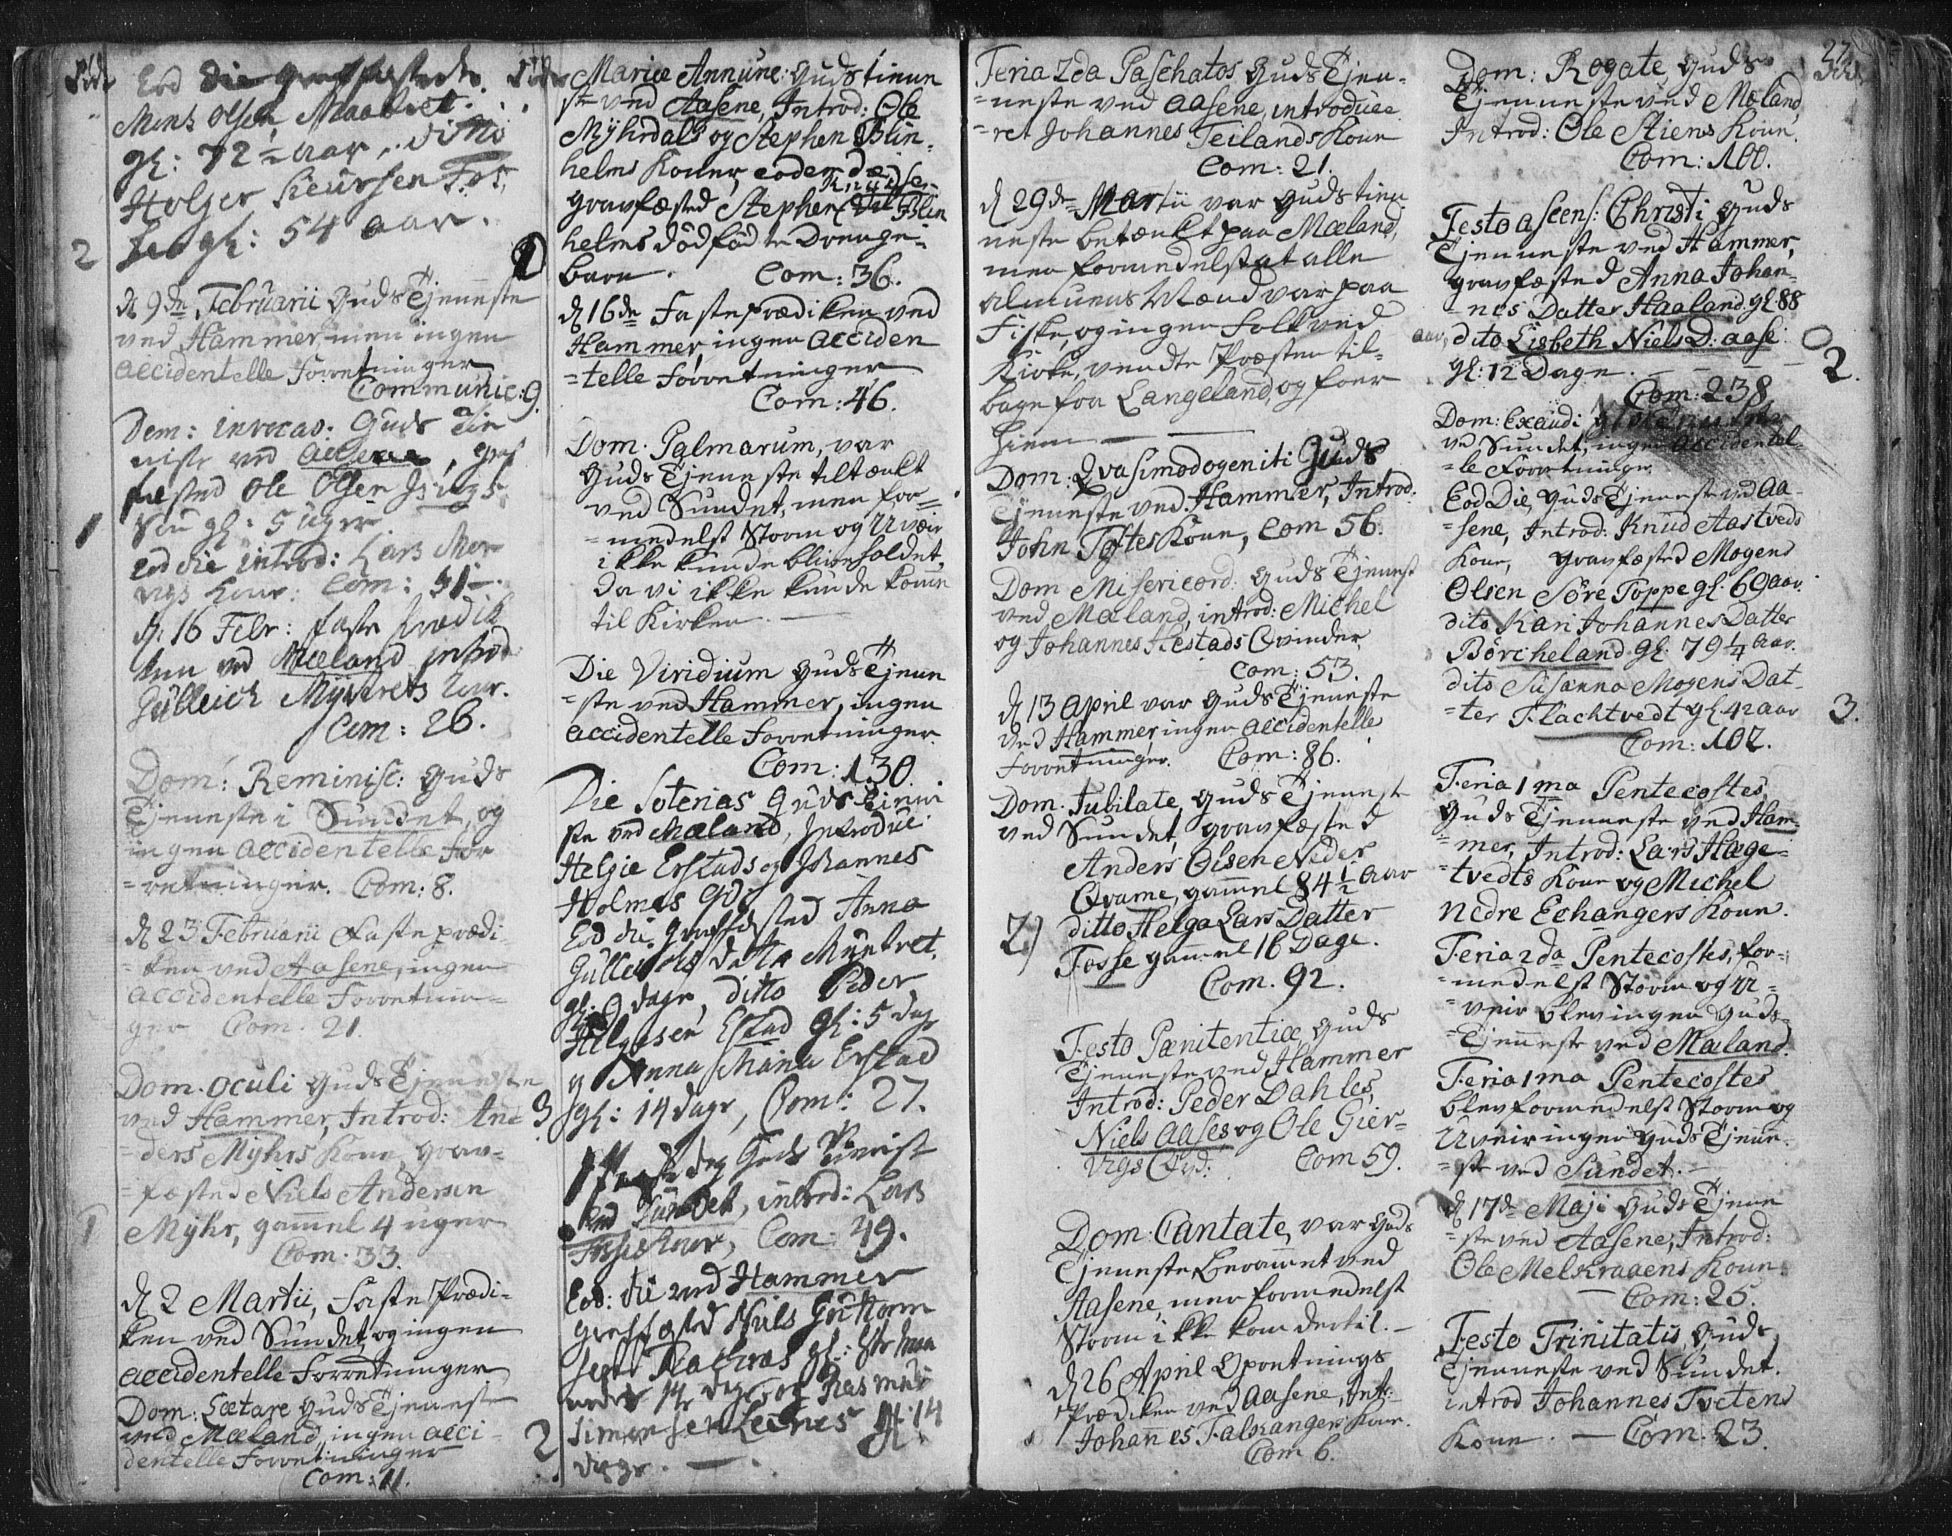 Död
Eod die grafffæstede
Mons Olsen Maabret
gl: 72 1/2 aar, dito
Holger Sieursen Fos,
gl: 54 aar.
2
d 9de Februarii Guds Tjenneste
ved Hammer, men ingen
accidentelle Forretninger
Communic: 9.
Dom: invocav: Guds Tie
niste ved Aasene, graf
fæsted Ole Olsen
Sön gl: 5 uger
1
eod die introd: Lars Mor
vigs kone: Com: 31.
d. 16 Febr: faste Prædik
ken ved Mæland introd
Gulleich Myktrets kone.
Com: 26.
Dom: Reminisc: Guds
Tjenneste i Sundet, og
ingen accidentelle for
=retninger. Com: 8.
d 23 Februarii Fasteprædi
=ken ved Aasene, ingen
accidentelle Forretnin=
ger Com. 21.
Dom. Oculi Guds Tjenneste
ved Hammer, Introd: An
=ders Myhrs Kone, grav=
=fæsted Niels Andersen
Myhr, gammel 4 uger
1
Com: 33.
d 2 Martii, Faste Prædi=
ken ved Sundet, og ingen
accidentelle Forretninger
Dom: Lætare Guds Tjenneste
ved Mæland, ingen acci=
dentelle Forretninger
Com: 11.
Död
Mariæ Annunc: Guds tienne
ste ved Aasene, Introd: Ole
Myhrdals og Stephen Blin=
helms Koner, eodem die
gravfæsted Stephen Knudsen
Blin
helms dödfödte Drenge=
barn. Com: 36.
1
d 16de Fasteprædiken ved
Hammer, ingen acciden
=telle Forretninger
Com: 46.
Dom. Palmarum, var
Guds Tjeneste tiltænkt
ved Sundet, men for=
=medelst Storm og Uvær
ikke kunde blive holdet,
da vi ikke kunde komme
til Kirken.
Die Viridium Guds Tjenne
=ste ved Hammer, ingen
accidentelle Forretninger.
Com: 130.
Die Soterias Guds Tienni
ste ved Mæland, Introduc:
Helgie Erstads og Johannes
Holmes Qvd:
Eod die graffæsted Anna
Gulleichs datter Myntret,
gl: 9 dage, ditto Peder
Helgesen Erstad gl: 5 dage
og Anna Maria Erstad
3 gl: 14 dage, Com: 27.
1 Paaskedag Guds Tienist
ved Sundet, introd: Lars
Fosses kone, Com: 49.
Eod: die ved Hammer
graffæsted Niels Guttorm
gl:
og Rasmus
Simonsen Leeknes gl: 14
2 dage.
Feria 2da Paschatos Guds Tjen=
=neste ved Aasene, introduce
=ret Johannes Teilands Kone
Com: 21.
d 29de Martii var Guds tien
neste betænkt paa Mæland,
men formedelst at alle
almuens Mænd var paa
Fiske, og ingen Folk ved
Kirke, vendte Præsten til=
bage fra Langeland, og foer
hiem
Dom: Qvasimodogeniti Guds
Tjenneste ved Hammer, Introd:
John Toftes Kone, Com 56.
Dom Misericord: Guds Tjennest
ved Mæland, introd: Michel
og Johannes Hestads Qvinder,
Com: 53.
d 13 April var Guds Tjenneste
ved Hammer, ingen accidentelle
Forretninger. Com: 86.
Dom. Jubilate, Guds Tjennest
ved Sundet, gravfæsted
Anders Olsen Neder
Qvame, gammel 84 1/2 aar
2) ditto Helga Lars Datter
Fosse gammel 16 Dage.
Com. 92.
Festo Pænitentiæ Guds
Tjenneste ved Hammer
Introd: Peder Dahles,
Niels Aases og Ole Gier=
vigs Qvd: Com 59.
Dom: Cantate, var Guds
Tjenneste berammet ved
Aasene, men formedelst
Storm ikke kom dertil.
d 26 April Opretnings
Prædiken ved Aasene, Int:
Johannes Falkangers Kone.
Com 6.
27.
Död
Dom: Rogate, Guds
Tjenneste ved Mæland,
Introd: Ole Stiens Kone,
Com: 100.
Festo Ascens: Christi Guds
Tjenneste ved Hammer,
gravfæsted Anna Johan=
=nes Datter Haaland gl 88
aar, dito Lisbeth Niels D: Aase
gl: 12 Dage. 2.
Com: 238
Dom: Exaudi
ved Sundet, ingen accidentel
=le Forretninger.
Eod Die, Guds Tjenneste ved Aa=
=sene, Introd: Knud Aastveds
Kone, gravfæsted Mogens
Olsen Söre Toppe gl: 69 aar.
dito Kari Johannes Datter
Börcheland gl: 79 1/4 aar.
dito Susanna Mogens Dat=
=ter Flachtvedt gl 42 aar 3.
Com: 102.
Feria 1ma Pentecostes,
Guds Tjenneste ved Ham=
=mer, Introd: Lars Hæge=
tvedts Kone og Michel
Nedre Echangers Kone.
Feria 2da Pentecostes, for=
=medelst Storm og U=
=veir blev ingen Guds=
=Tjenneste ved Mæland.
Feria 1ma Pentecostes
blev formedelst Storm og
Uveir ingen Guds Tjenne=
=ste ved Sundet.
d 17de Maji Guds Tjenne
=ste ved Aasene, Introd:
Ole Melkraaens Kone.
Com: 25.
Festo Trinitatis, Guds
Tjenneste ved Sundet.
introd Johannes Tvetens
Kone. Com: 23.